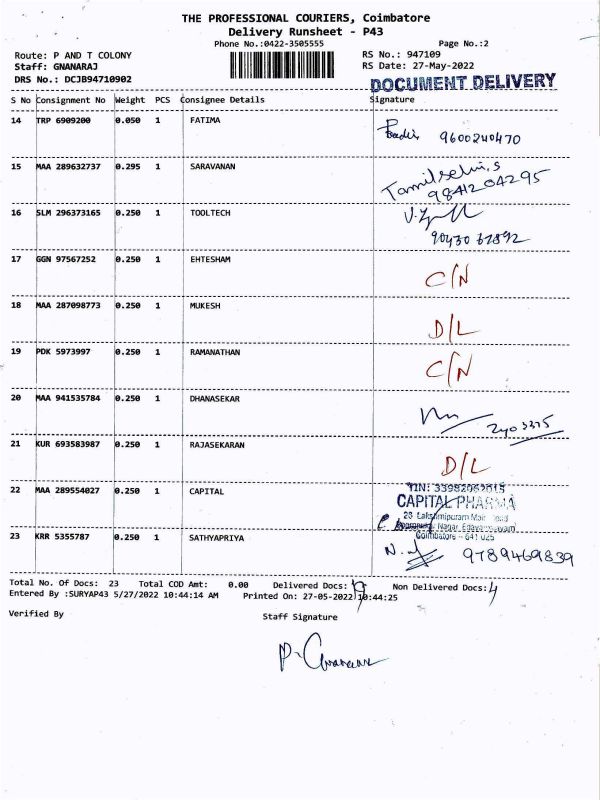 THE PROFESSIONAL COURIERS, Coimbatore
Delivery Runsheet - P43
Phone No.:0422-3505555 Page No.:2
Route: P AND T COLONY RS No.: 947109
Staff: GNANARAJ RS Date: 27-May-2022
DRS No.: DCJB94710902 DOCUMENT DELIVERY
S No Consignment No Weight PCS Consignee Details Signature
14 TRP 6909200 0.050 1 FATIMA
9600240470
15 MAA 289632737 0.295 1 SARAVANAN
Tamilselvi.S
9841204295
16 SLM 296373165 0.250 1 TOOLTECH
90430 61892
17 GGN 97567252 0.250 1 EHTESHAM
C/N
18 MAA 287098773 0.250 1 MUKESH
D/L
19 PDK 5973997 0.250 1 RAMANATHAN
C/N
20 MAA 941535784 0.250 1 DHANASEKAR
2403375
21 KUR 693583987 0.250 1 RAJASEKARAN
D/L
22 MAA 289554027 0.250 1 CAPITAL
TIN: 33982062015
CAPITAL PHARMA
23 Lakshmipuram Main Road
Coimbatore - 641 025
23 KRR 5355787 0.250 1 SATHYAPRIYA
9789469839
Total No. Of Docs: 23 Total COD Amt: 0.00 Delivered Docs: 19 Non Delivered Docs: 4
Entered By :SURYAP43 5/27/2022 10:44:14 AM Printed On: 27-05-2022 10:44:25
Verified By Staff Signature
P. Gnanaraj